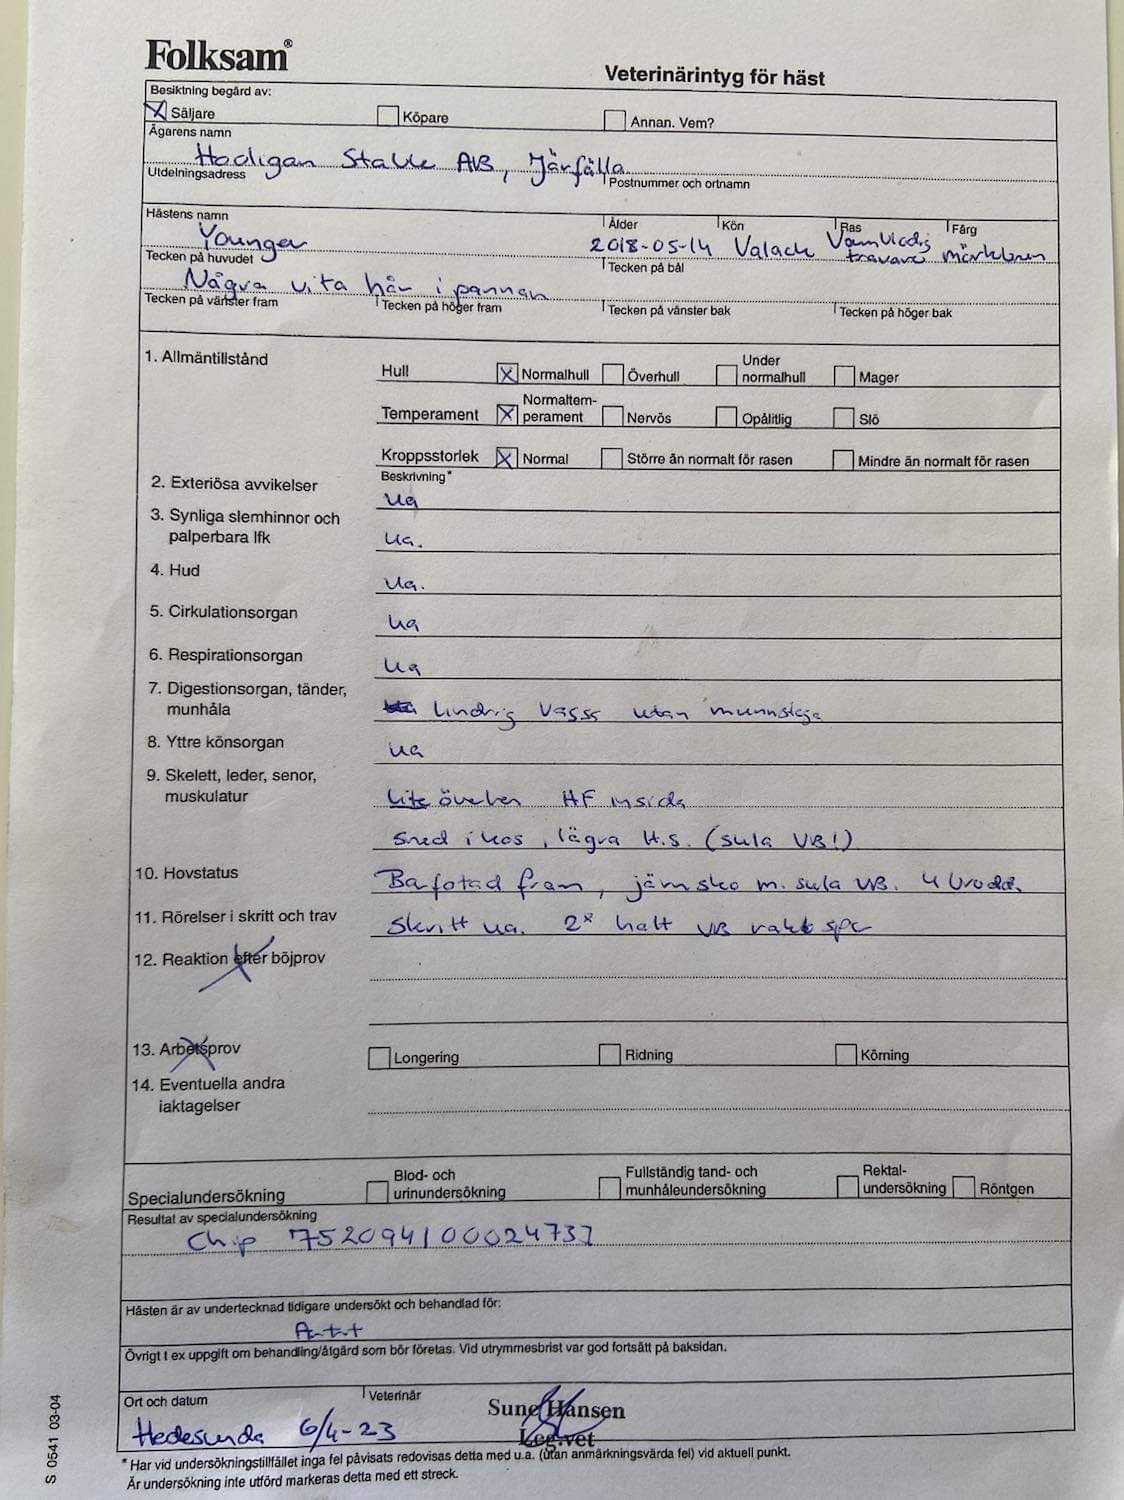 Folksam®
Veterinärintyg för häst
Besiktning begärd av:
Säljare Köpare Annan. Vem?
Ägarens namn
Hooligan Stable AB, Järfälla
Utdelningsadress Postnummer och ortnamn
Hästens namn Ålder Kön Ras Färg
Younger 2018-05-14 Valack Varmblodig travare mörkbrun
Tecken på huvudet Tecken på bål
Några vita hår i pannan
Tecken på vänster fram Tecken på höger fram Tecken på vänster bak Tecken på höger bak
1. Allmäntillstånd
Hull Normalhull Överhull Under normalhull Mager
Temperament Normaltem-perament Nervös Opålitlig Slö
Kroppsstorlek Normal Större än normalt för rasen Mindre än normalt för rasen
Beskrivning*
2. Exteriösa avvikelser ua
3. Synliga slemhinnor och
palperbara lfk ua.
4. Hud ua.
5. Cirkulationsorgan ua
6. Respirationsorgan ua
7. Digestionsorgan, tänder,
munhåla lindrig vassa utan
8. Yttre könsorgan ua
9. Skelett, leder, senor,
muskulatur Lite överben HF insida
sned i kors, lägra H.S. (sula VB!)
10. Hovstatus Barfotad fram, järnsko m. sula VB. 4 brodd.
11. Rörelser i skritt och trav Skritt ua. 2° halt VB rakt spår
12. Reaktion efter böjprov
13. Arbetsprov Longering Ridning Körning
14. Eventuella andra
iaktagelser
Specialundersökning Blod- och urinundersökning Fullständig tand- och munhåleundersökning Rektal-undersökning Röntgen
Resultat av specialundersökning
Chip 752094100024737
Hästen är av undertecknad tidigare undersökt och behandlad för:
Övrigt t ex uppgift om behandling/åtgärd som bör företas. Vid utrymmesbrist var god fortsätt på baksidan.
Ort och datum Veterinär
Hedesunda 6/4-23 Sune Hansen
Leg.vet
* Har vid undersökningstillfället inga fel påvisats redovisas detta med u.a. (utan anmärkningsvärda fel) vid aktuell punkt.
Är undersökning inte utförd markeras detta med ett streck.
S 0541 03-04